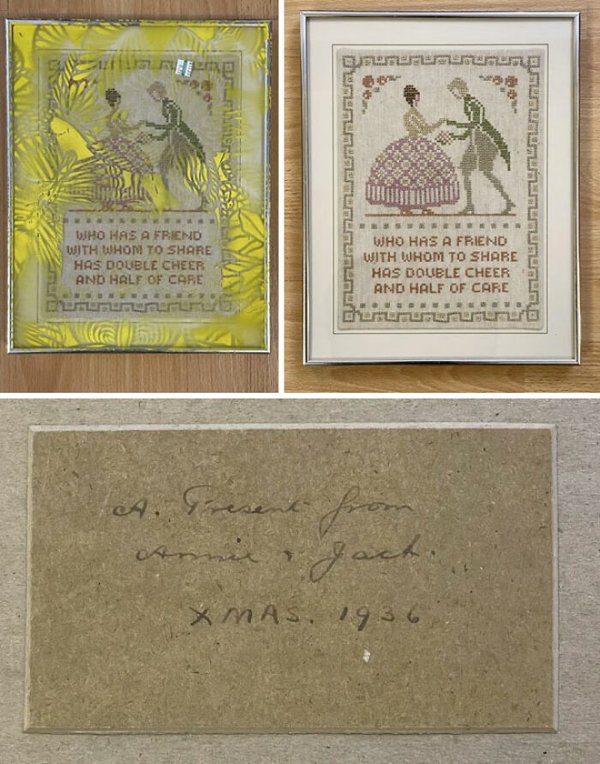 WHO HAS A FRIEND
WITH WHOM TO SHARE
HAS DOUBLE CHEER
AND HALF OF CARE
WHO HAS A FRIEND
WITH WHOM TO SHARE
HAS DOUBLE CHEER
AND HALF OF CARE
A. Present from
Annie & Jack.
XMAS. 1936